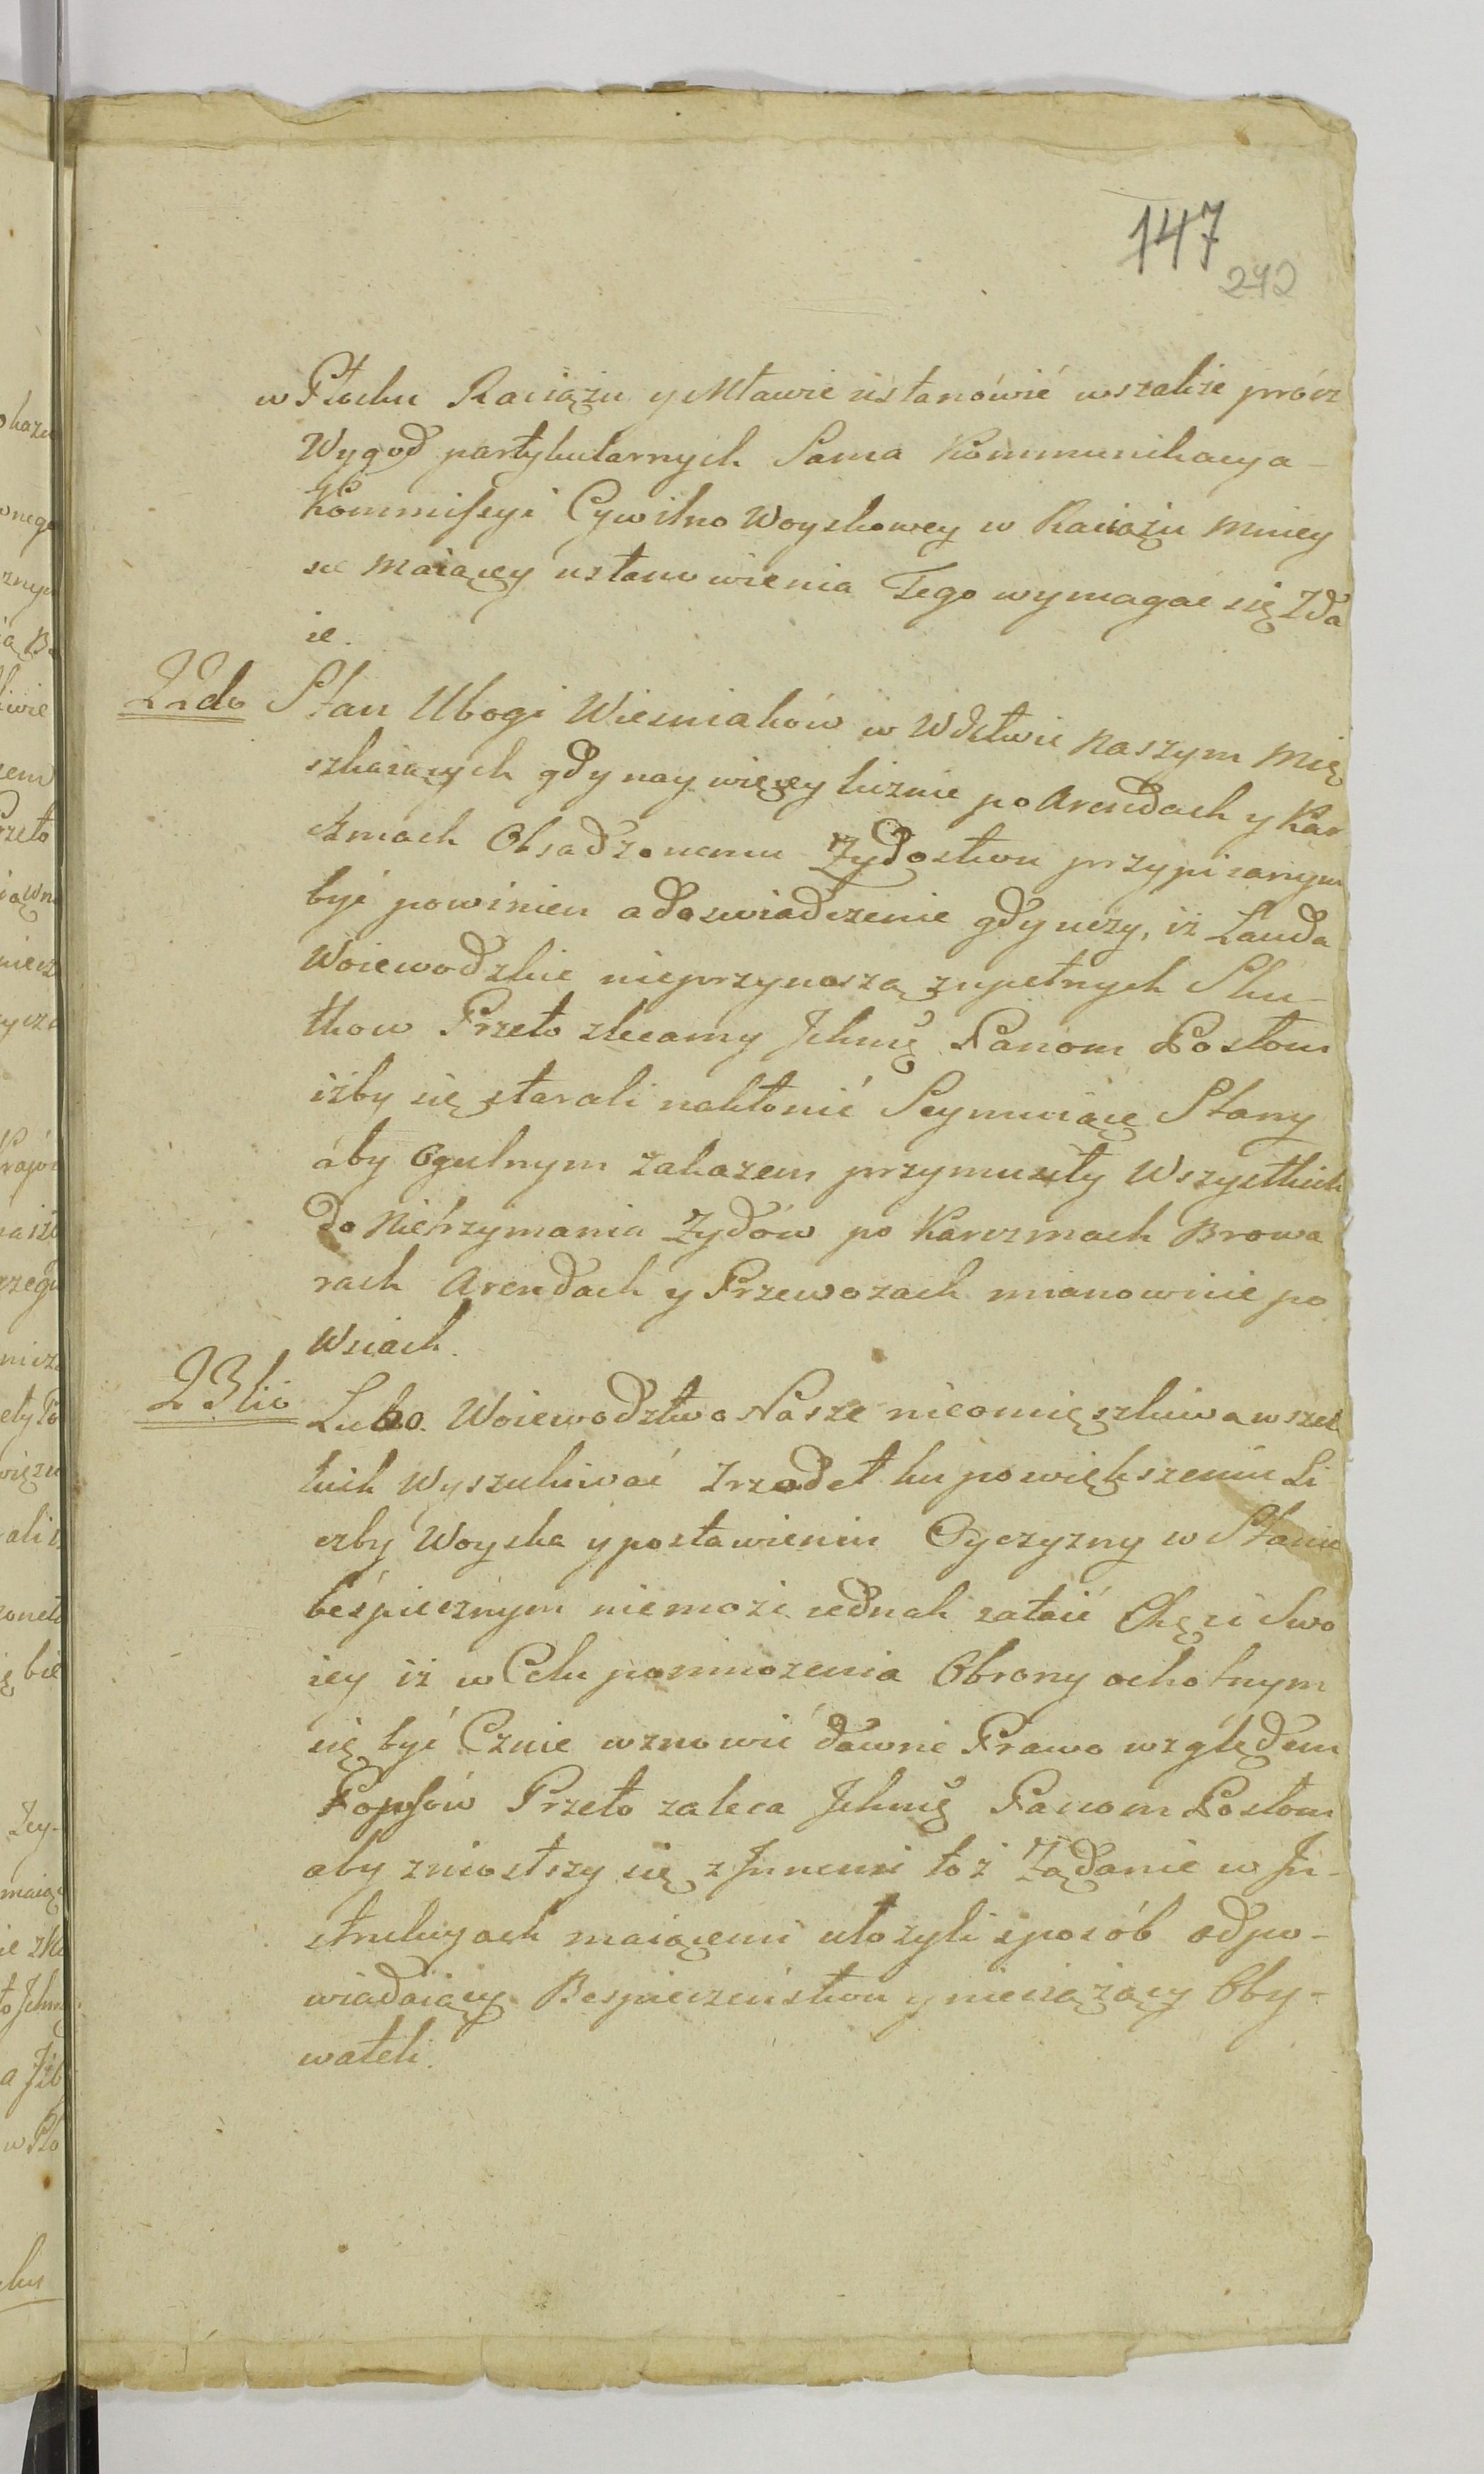 147
242
w Płocku Raciążu y Mławie ustanówić wszakże prócz
Wygod partykularnych Sama Kommunikacya
Kommissyi Cywilno Woyskowey w Raciążu mniey
sce maiącey ustanowienia Tego wymagać się Zda
ie.
22do Stan Ubogi Wiesniaków w Wdztwie Naszym Mię
szkaiących gdy nay więcey licznie po Arendach y Kar
czmach Obsadzonemu Zydostwu przypisanym
być powinien a doswiadczenie gdy uczy, iz Lauda
Woiewodzkie nieprzynoszą zupełnych Sku-
tkow Przeto zlecamy Jchmę Panom Posłom
iżby się starali nakłonić Seymuiące Stany
aby Ogulnym zakazem przymusiły Wszystkich
do Nietrzymania Zydów po Karczmach Browa
rach Arendach y Przewozach mianowicie po
Wsiach.
23tio Lubo Woiewodztwo Nasze nieomięszkiwa wszel
kich Wyszukiwać Zrzodeł ku powiększeniu Li
czby Woyska y postawieniu Oyczyzny w Stanie
béspiecznym niemoże iednak zataić Chęci Swo
iey iz w Celu pomnożenia Obrony ochotnym
się być Czuie wznowić dawne Prawo względem
Popisów Przeto zaleca Jchmę Panom Posłom
aby zniosłszy się z Jnnemi toż Żądanie w Jn-
strukcyach maiącemi ułożyli sposób odpo-
wiadaiący Bespieczeństwu y nieciążący Oby-
wateli.